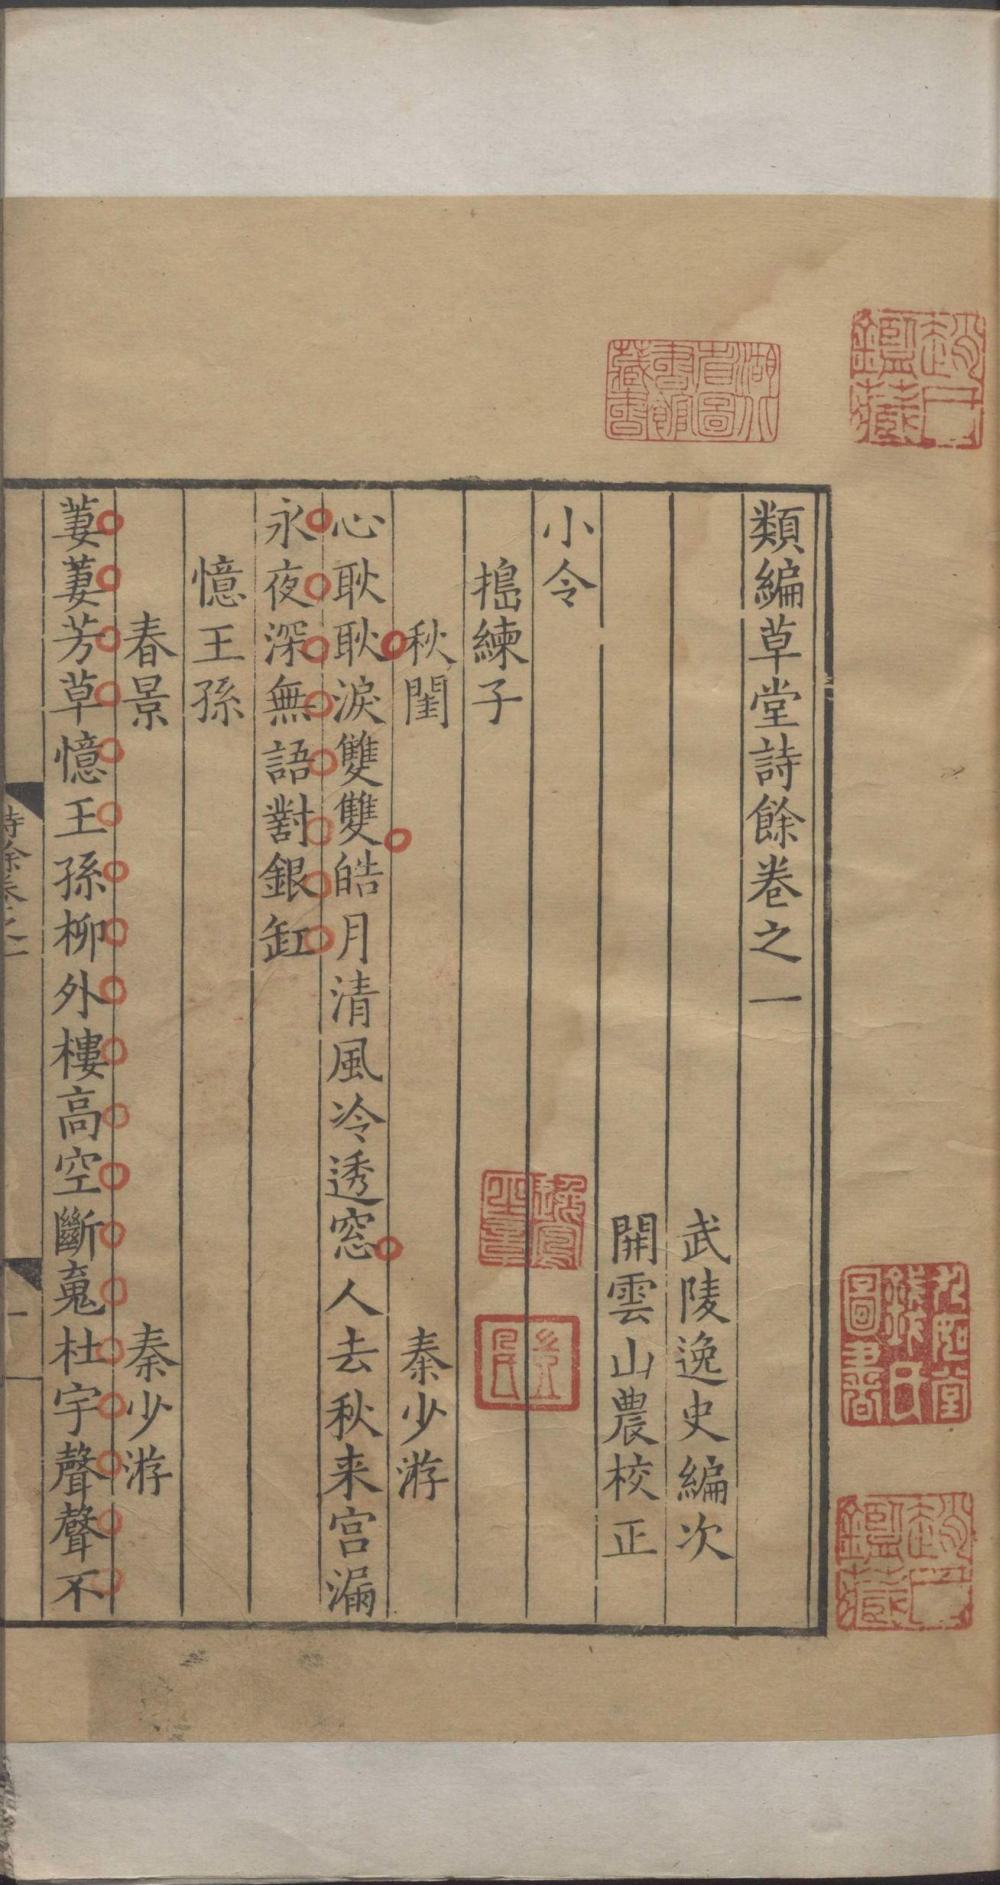 類編草堂詩餘卷之一
武陵逸史編次
開雲山農校正
小令
搗練子
秋閨 秦少游
心耿耿淚雙雙皓月清風冷透窓人去秋来宫漏
永夜深無語對銀缸
憶王孫
春景 秦少游
萋萋芳草憶王孫柳外樓高空斷䰟杜宇聲聲不
詩餘卷之一
一
湖北省圖書館藏書
九如堂錢氏圖書